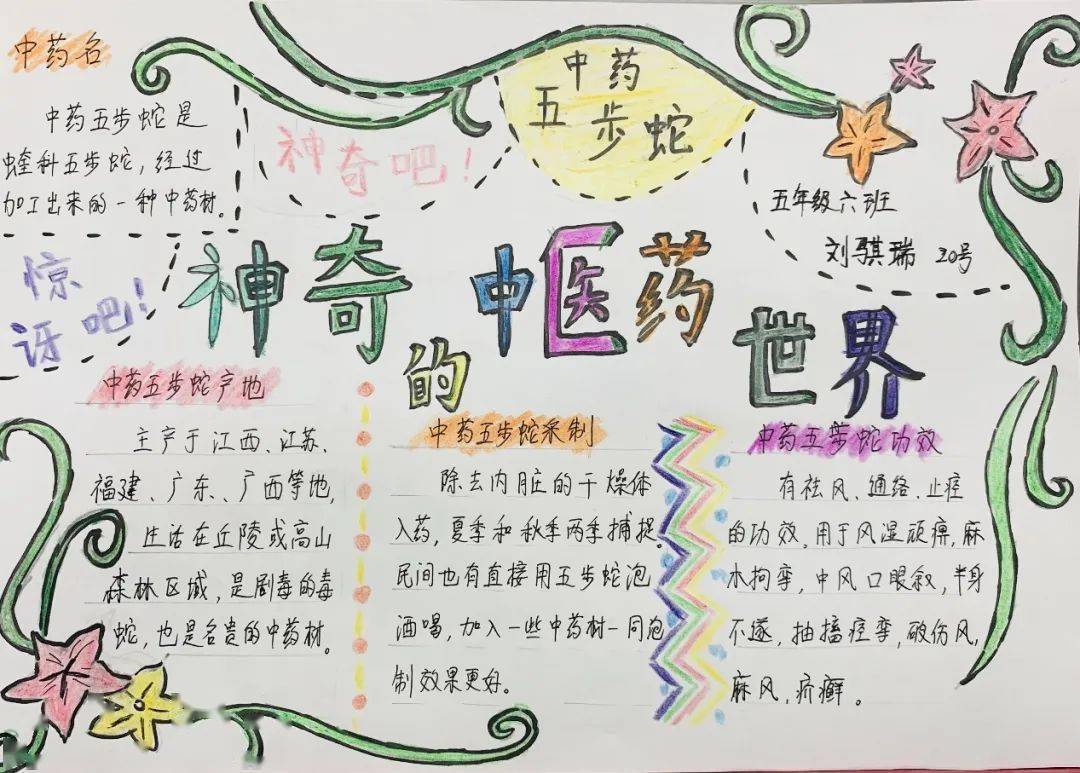 中药名
中药五步蛇是
蝰科五步蛇，经过
加工出来的一种中药材。
神奇吧！
中药
五步蛇
五年级六班
刘骐瑞 20号
惊
讶吧！
神奇的中医药世界
中药五步蛇产地
主产于江西、江苏、
福建、广东、广西等地，
生活在丘陵或高山
森林区域，是剧毒的毒
蛇，也是名贵的中药材。
中药五步蛇采制
除去内脏的干燥体
入药，夏季和秋季两季捕捉。
民间也有直接用五步蛇泡
酒喝，加入一些中药材一同泡
制效果更好。
中药五步蛇功效
有祛风、通络、止痉
的功效。用于风湿顽痹，麻
木拘挛，中风口眼㖞，半身
不遂，抽搐痉挛，破伤风，
麻风，疥癣。